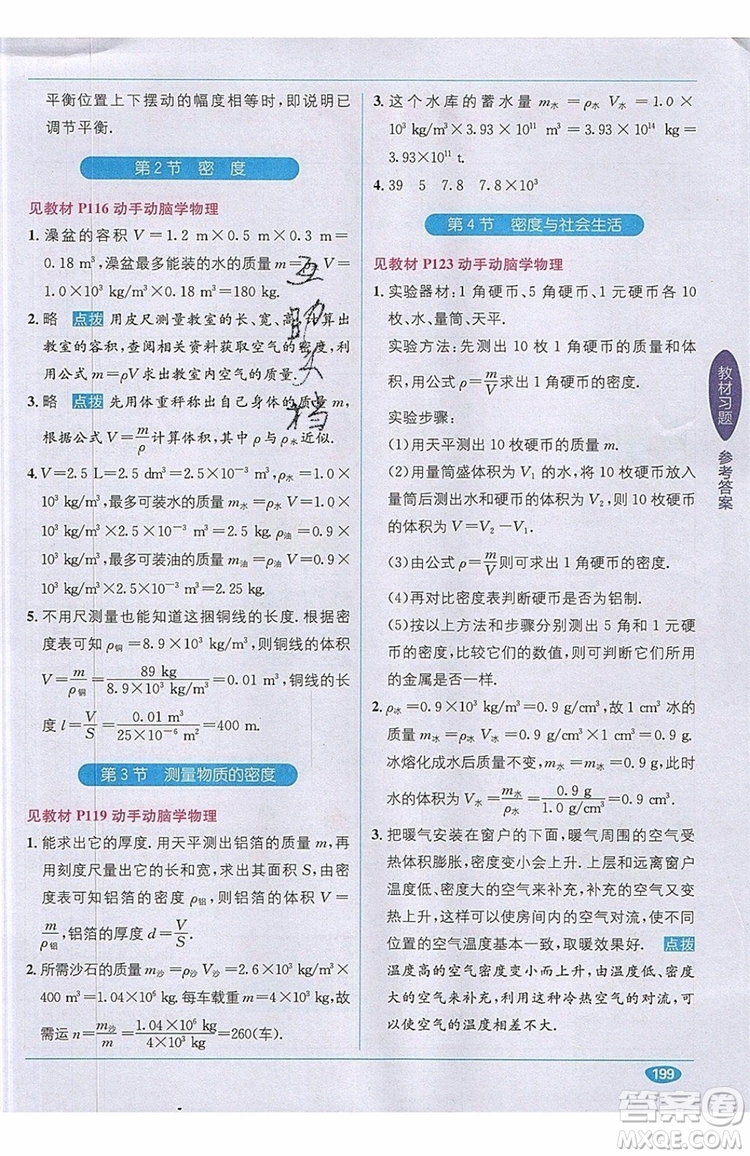 平衡位置上下摆动的幅度相等时，即说明已
调节平衡.
第2节 密 度
见教材 P116 动手动脑学物理
1. 澡盆的容积 V＝1.2 m×0.5 m×0.3 m＝
0.18 m³，澡盆最多能装的水的质量 m＝ρV＝
1.0×10³ kg/m³×0.18 m³＝180 kg.
2. 略 点拨 用皮尺测量教室的长、宽、高，计算出
教室的容积，查阅相关资料获取空气的密度，利
用公式 m＝ρV 求出教室内空气的质量.
3. 略 点拨 先用体重秤称出自己身体的质量 m，
根据公式 V＝m/ρ 计算体积，ρ 与 ρ水 近似.
4. V＝2.5 L＝2.5 dm³＝2.5×10⁻³ m³，ρ水＝1.0×
10³ kg/m³，最多可装水的质量 m水＝1.0×
10³ kg/m³×2.5×10⁻³ m³＝2.5 kg，ρ油＝0.9×
10³ kg/m³，最多可装油的质量 m油＝0.9×
10³ kg/m³×2.5×10⁻³ m³＝2.25 kg.
5. 不用尺测量也能知道这捆铜线的长度. 根据密
度表可知 ρ铜＝8.9×10³ kg/m³，则铜线的体积
V＝m/ρ铜＝89 kg/8.9×10³ kg/m³＝0.01 m³，铜线的长
度 l＝V/S＝0.01 m³/25×10⁻⁶ m²＝400 m.
第3节 测量物质的密度
见教材 P119 动手动脑学物理
1. 能求出它的厚度. 用天平测出铝箔的质量 m，再
用刻度尺量出它的长和宽，求出其面积 S，从密
度表可查知铝箔的密度 ρ铝，则铝箔的体积 V＝
m/ρ铝，铝箔的厚度 d＝V/S.
2. 所需沙石的质量 m沙＝ρ沙V＝2.6×10³ kg/m³×
400 m³＝1.04×10⁶ kg. 每车载重量 m＝4 t，故
需运 n＝m沙/m＝1.04×10⁶ kg/4×10³ kg＝260(车).
3. 这个水库的蓄水量 m水＝ρ水V水＝1.0×
10³ kg/m³×3.93×10¹¹ m³＝3.93×10¹⁴ kg＝
3.93×10¹¹ t.
4. 39 5 7.8 7.8×10³
第4节 密度与社会生活
见教材 P123 动手动脑学物理
1. 实验器材：1 角硬币、5 角硬币、1 元硬币各 10
枚、水、量筒、天平.
实验方法：先测出 10 枚 1 角硬币的质量和体
积，再根据公式 ρ＝m/V 求出密度.
实验步骤：
(1)用天平测出 10 枚硬币的质量 m.
(2)用量筒盛体积为 V₁ 的水，将 10 枚硬币放入
量筒中，测出总体积为 V₂，则 10 枚硬币的
体积为 V＝V₂－V₁.
(3)由公式 ρ＝m/V，可求出 1 角硬币的密度.
(4)再对比密度表判断硬币是否为铝制.
(5)按以上方法和步骤分别测出 5 角和 1 元硬
币的密度，比较它们的数值，则可判断所用
的金属是否一样.
2. ρ冰＝0.9×10³ kg/m³＝0.9 g/cm³，故 1 cm³ 冰的
质量为 m冰＝ρ冰V冰＝0.9 g/cm³×1 cm³＝0.9 g.
冰熔化成水后质量不变，m水＝m冰＝0.9 g，其
体积为 V水＝m水/ρ水＝0.9 g/1.0 g/cm³＝0.9 cm³.
3. 把暖气安装在窗户的下面，暖气周围的空气受
热体积膨胀，密度变小会上升. 上升后远离窗户
温度低、密度大的空气来补充，补充的空气又受
热上升，这样可以使房间内的空气对流，使不同
位置的空气温度基本一致，取暖效果好. 点拨
温度高的空气密度变小而上升，温度低、密度大
的空气来补充，利用这种冷热空气的对流，可以
使室内空气的温度相差不大.
教材习题
参考答案
199
互助文档
答案圈
MXQE.COM